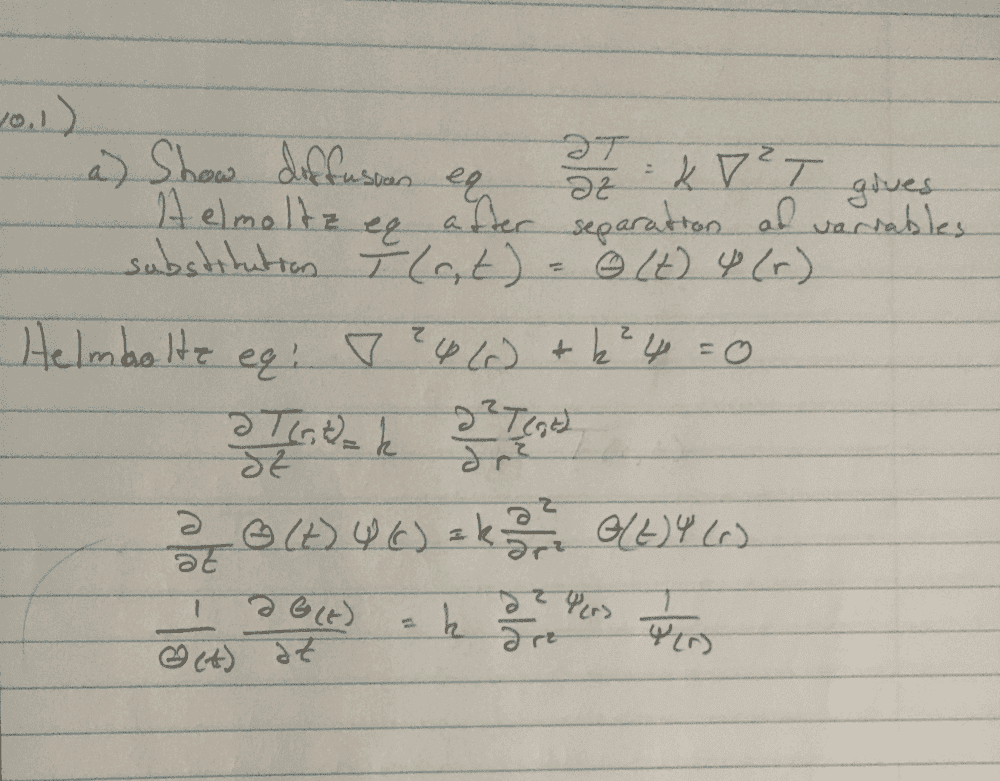 10.1)
a) Show diffusion eq ∂T/∂t = k ∇²T gives
Helmoltz eq after separation of variables
substitution T(r,t) = Θ(t) Ψ(r)
Helmholtz eq: ∇²Ψ(r) + k²Ψ = 0
∂T(r,t)/∂t = k ∂²T(r,t)/∂r²
∂/∂t Θ(t) Ψ(r) = k ∂²/∂r² Θ(t)Ψ(r)
1/Θ(t) ∂Θ(t)/∂t = k ∂²/∂r² Ψ(r) 1/Ψ(r)